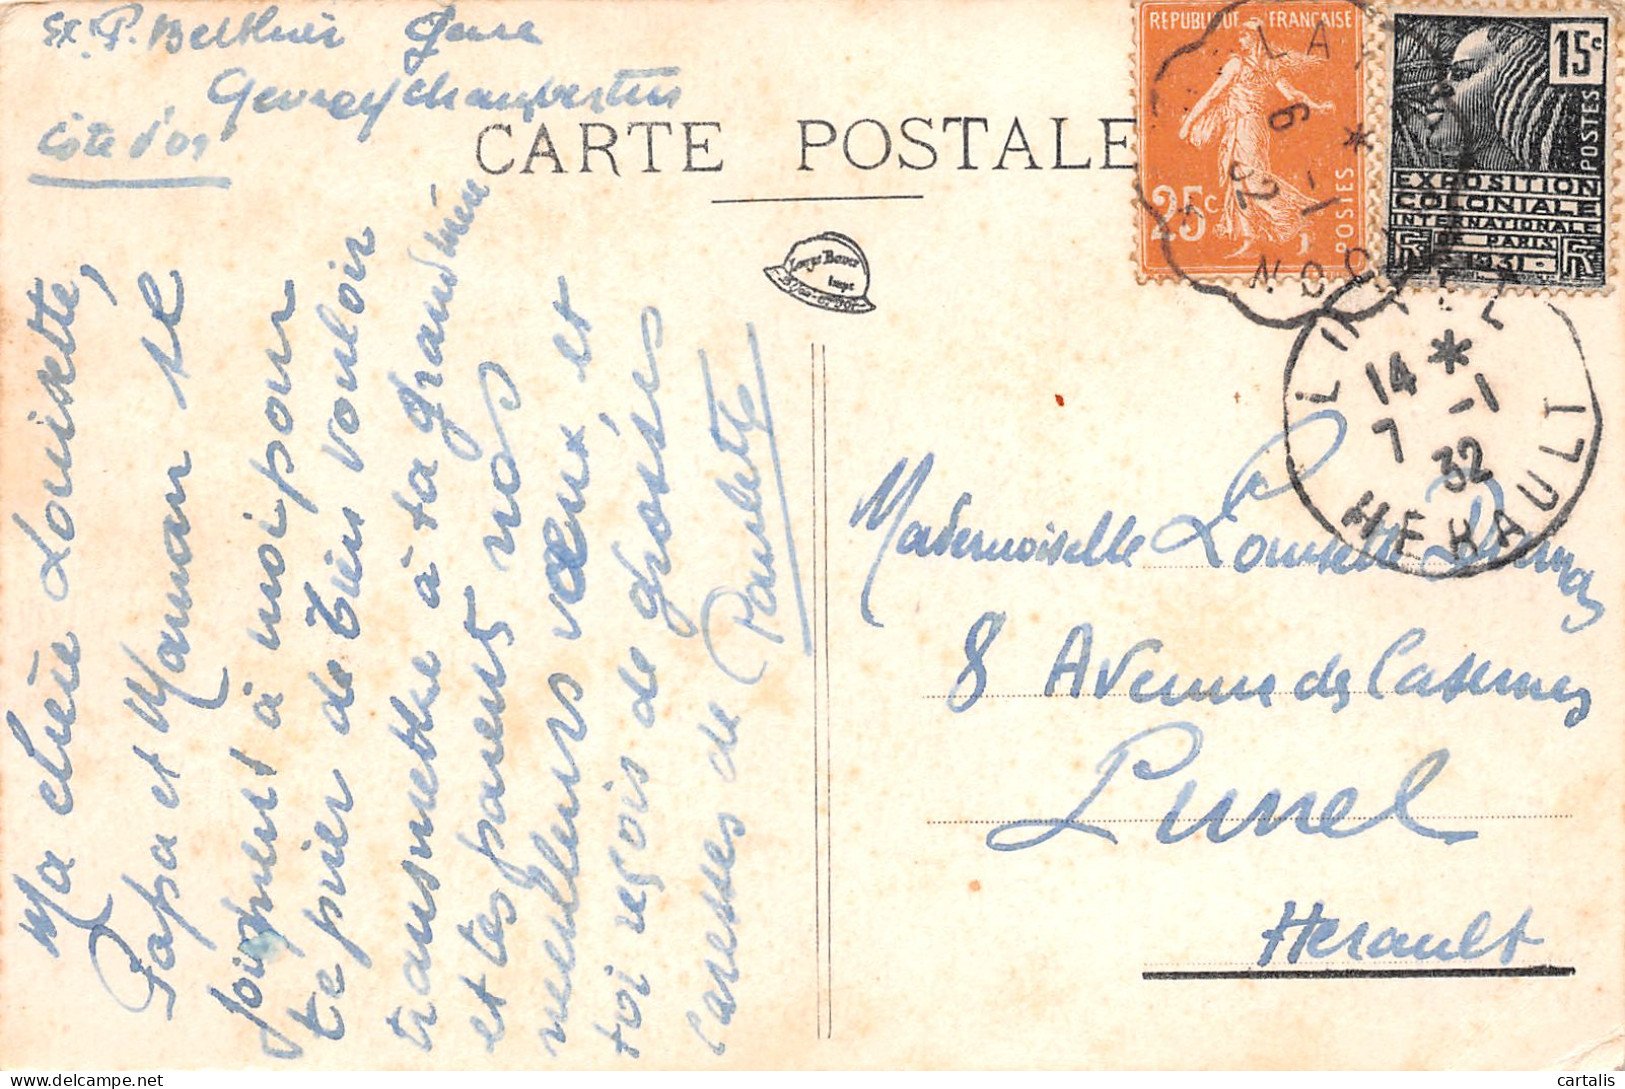 Ex. P. Berthier
Gevrey Chambertin
Côte d'or
CARTE POSTALE
RÉPUBLIQUE FRANÇAISE
25c
POSTES
15c
POSTES
EXPOSITION
COLONIALE
INTERNATIONALE
PARIS
1931
6 -1
32
*
14 *
7 -1
32
HERAULT
Ma chère Louisette,
Papa et Maman se
joignent à moi pour
te prier de bien vouloir
transmettre à ta grandmère
et tes parents nos
meilleurs vœux et
toi reçois de grosses
caresses de Paulette
Mademoiselle Louisette
8 Avenue des Casernes
Lunel
Herault
cartalis
www.delcampe.net